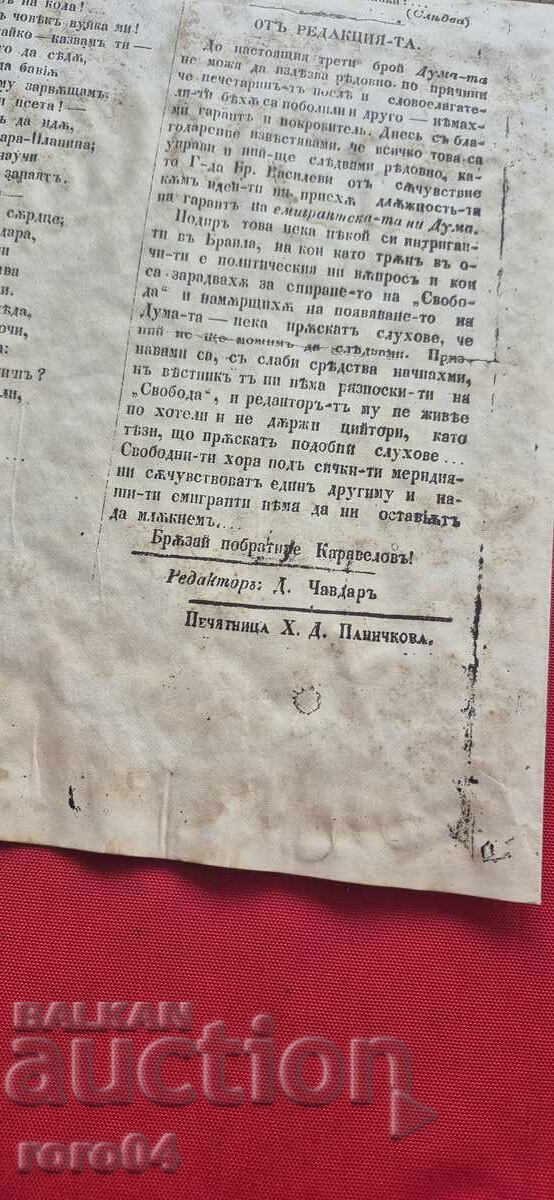 ь на кола!
ъ човѣкъ вуйка ми!
айко — казвам ти —
го да сѣдѫ,
да бавіѫ
му зарвѫщамъ.
и псета! —
ъ да идѫ,
ара-Планина;
научи
запаятъ.
сѫрдце;
дара,
и
ава
и.
ѣда,
очи,
а:
ичъ?
ли,
(Слѣдва)
ОТЪ РЕДАКЦИЯ-ТА.
До настоящия трети брой Дума-та
не можя да излѣзва рѣдовно, по причини
че печетаринътъ послѣ и словослагате-
ли-ти бѣхѫ са поболили и друго — нѣмах-
ми гарантъ и покровитель. Днесь съ бла-
годарение извѣстявами, че всичко това са
управи и ний-ще слѣдвами рѣдовно, ка-
то Г-да Бр. Василеви отъ сѫчувствие
кѫмъ идеи-ти ни приехѫ длѫжность-та
на гарантъ на емигрантска-та ни Дума.
Подиръ това нека нѣкой си интриган-
ти в Браила, на кои като трѫнъ въ о-
чи-ти е политическия ни вѫпросъ и кои
са зарадвахѫ за спиране-то на „Свобо-
да“ и намѫрщихѫ на появяване-то на
Дума-та — нека прѫскатъ слухове, че
ний не ще можимъ да слѣдвами. Приз-
навами са, съ слаби срѣдства начнахми,
нъ вѣстникътъ ни нѣма разноски-ти на
„Свобода“, и редакторъ-тъ му не живѣе
по хотели и не дѫржи цийтори, като
тѣзи, що прѫскатъ подобни слухове...
Свободни-ти хора подъ сички-ти меридиа-
ни сѫчувствоватъ единъ другиму и на-
ши-ти емигранти нѣма да ни оставѭтъ
да млѫкнемъ....
Брѫзай побратиме Каравеловъ!
Редакторъ: Д. Чавдаръ
Печятница Х. Д. Паничкова.
BALKAN
auction
roro04